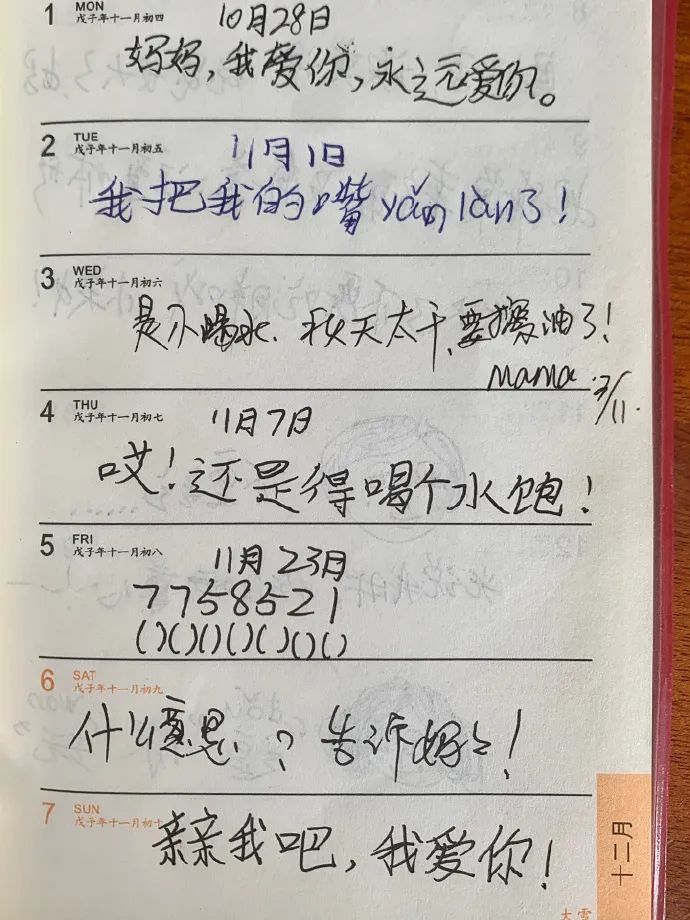 1 MON
戊子年十一月初四
10月28日
妈妈，我爱你，永远爱你。
2 TUE
戊子年十一月初五
11月1日
我把我的嘴 yǎn làn 了！
3 WED
戊子年十一月初六
是不喝水、秋天太干、要擦油了！
mama. 7/11.
4 THU
戊子年十一月初七
11月7日
哎！还是得喝个水饱！
5 FRI
戊子年十一月初八
11月23日
7758521
()()()()()()()
6 SAT
戊子年十一月初九
什么意思、？告诉妈妈！
7 SUN
戊子年十一月初十
亲亲我吧，我爱你！
十二月
大雪